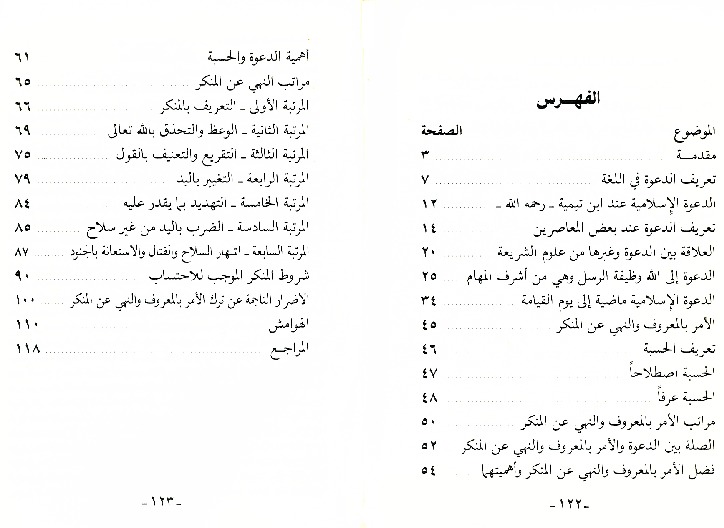 الفهـرس
الموضوع الصفحة
مقدمـة ٣
تعريف الدعوة في اللغة ٧
الدعوة الإسلامية عند ابن تيمية ـ رحمه الله ـ ١٢
تعريف الدعوة عند بعض المعاصرين ١٤
العلاقة بين الدعوة وغيرها من علوم الشريعة ٢٠
الدعوة إلى الله وظيفة الرسل وهي من أشرف المهام ٢٥
الدعوة الإسلامية ماضية إلى يوم القيامة ٣٤
الأمر بالمعروف والنهي عن المنكر ٤٥
تعريف الحسبة ٤٦
الحسبة اصطلاحاً ٤٧
الحسبة عرفاً ٤٨
مراتب الأمر بالمعروف والنهي عن المنكر ٥٠
الصلة بين الدعوة والأمر بالمعروف والنهي عن المنكر ٥٢
فضل الأمر بالمعروف والنهي عن المنكر وأهميتهما ٥٤
ـ١٢٢ـ
أهمية الدعوة والحسبة ٦١
مراتب النهي عن المنكر ٦٥
المرتبة الأولى ـ التعريف بالمنكر ٦٦
المرتبة الثانية ـ الوعظ والتخويف بالله تعالى ٦٩
المرتبة الثالثة ـ التقريع والتعنيف بالقول ٧٥
المرتبة الرابعة ـ التغيير باليد ٧٩
المرتبة الخامسة ـ التهديد بما يقدر عليه ٨٤
المرتبة السادسة ـ الضرب باليد من غير سلاح ٨٥
المرتبة السابعة ـ اشهار السلاح والقتال والاستعانة بالجنود ٨٧
شروط المنكر الموجب للاحتساب ٩٠
الأضرار الناجمة عن ترك الأمر بالمعروف والنهي عن المنكر ١٠٠
الهوامش ١١٠
المراجـع ١١٨
ـ١٢٣ـ